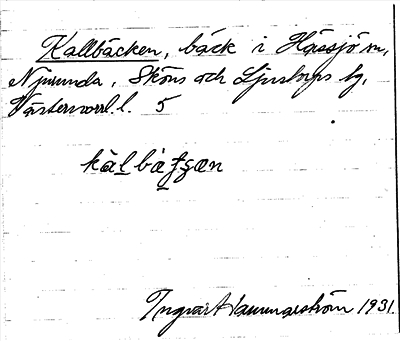 Kallbäcken, bäck i Hässjö sn,
Njurunda, Sköns och Ljustorps tg,
Västernorrl. l. 5
Ingvar Hammarström 1931.